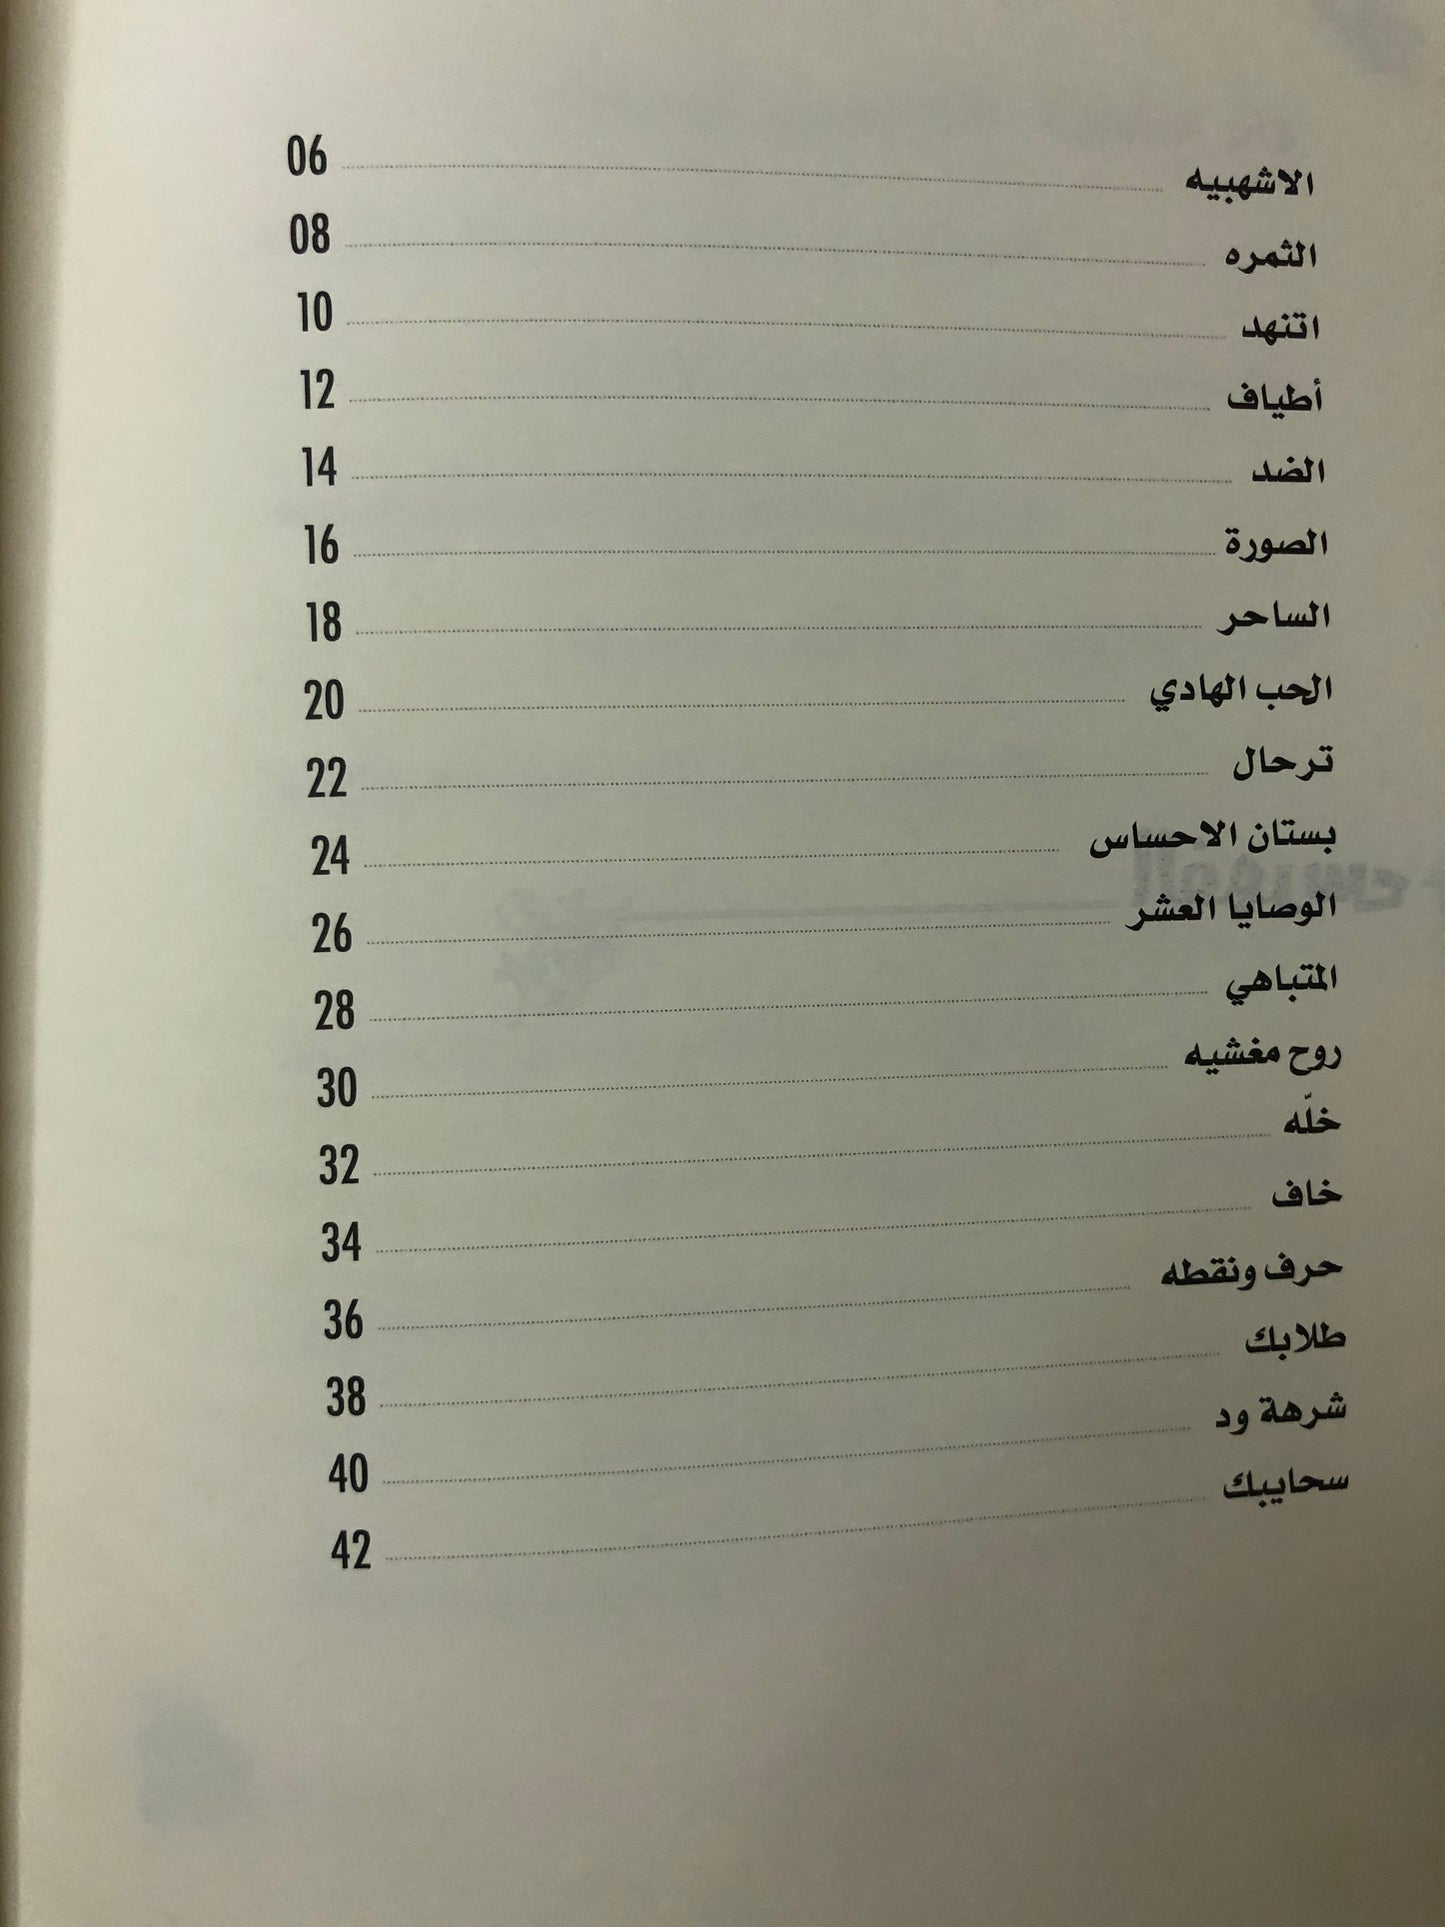 الاشهبيه 06
الثمره 08
اتنهد 10
أطياف 12
الضد 14
الصورة 16
الساحر 18
الحب الهادي 20
ترحال 22
بستان الاحساس 24
الوصايا العشر 26
المتباهي 28
روح مغشيه 30
خلّه 32
خاف 34
حرف ونقطه 36
طلابك 38
شرهة ود 40
سحايبك 42